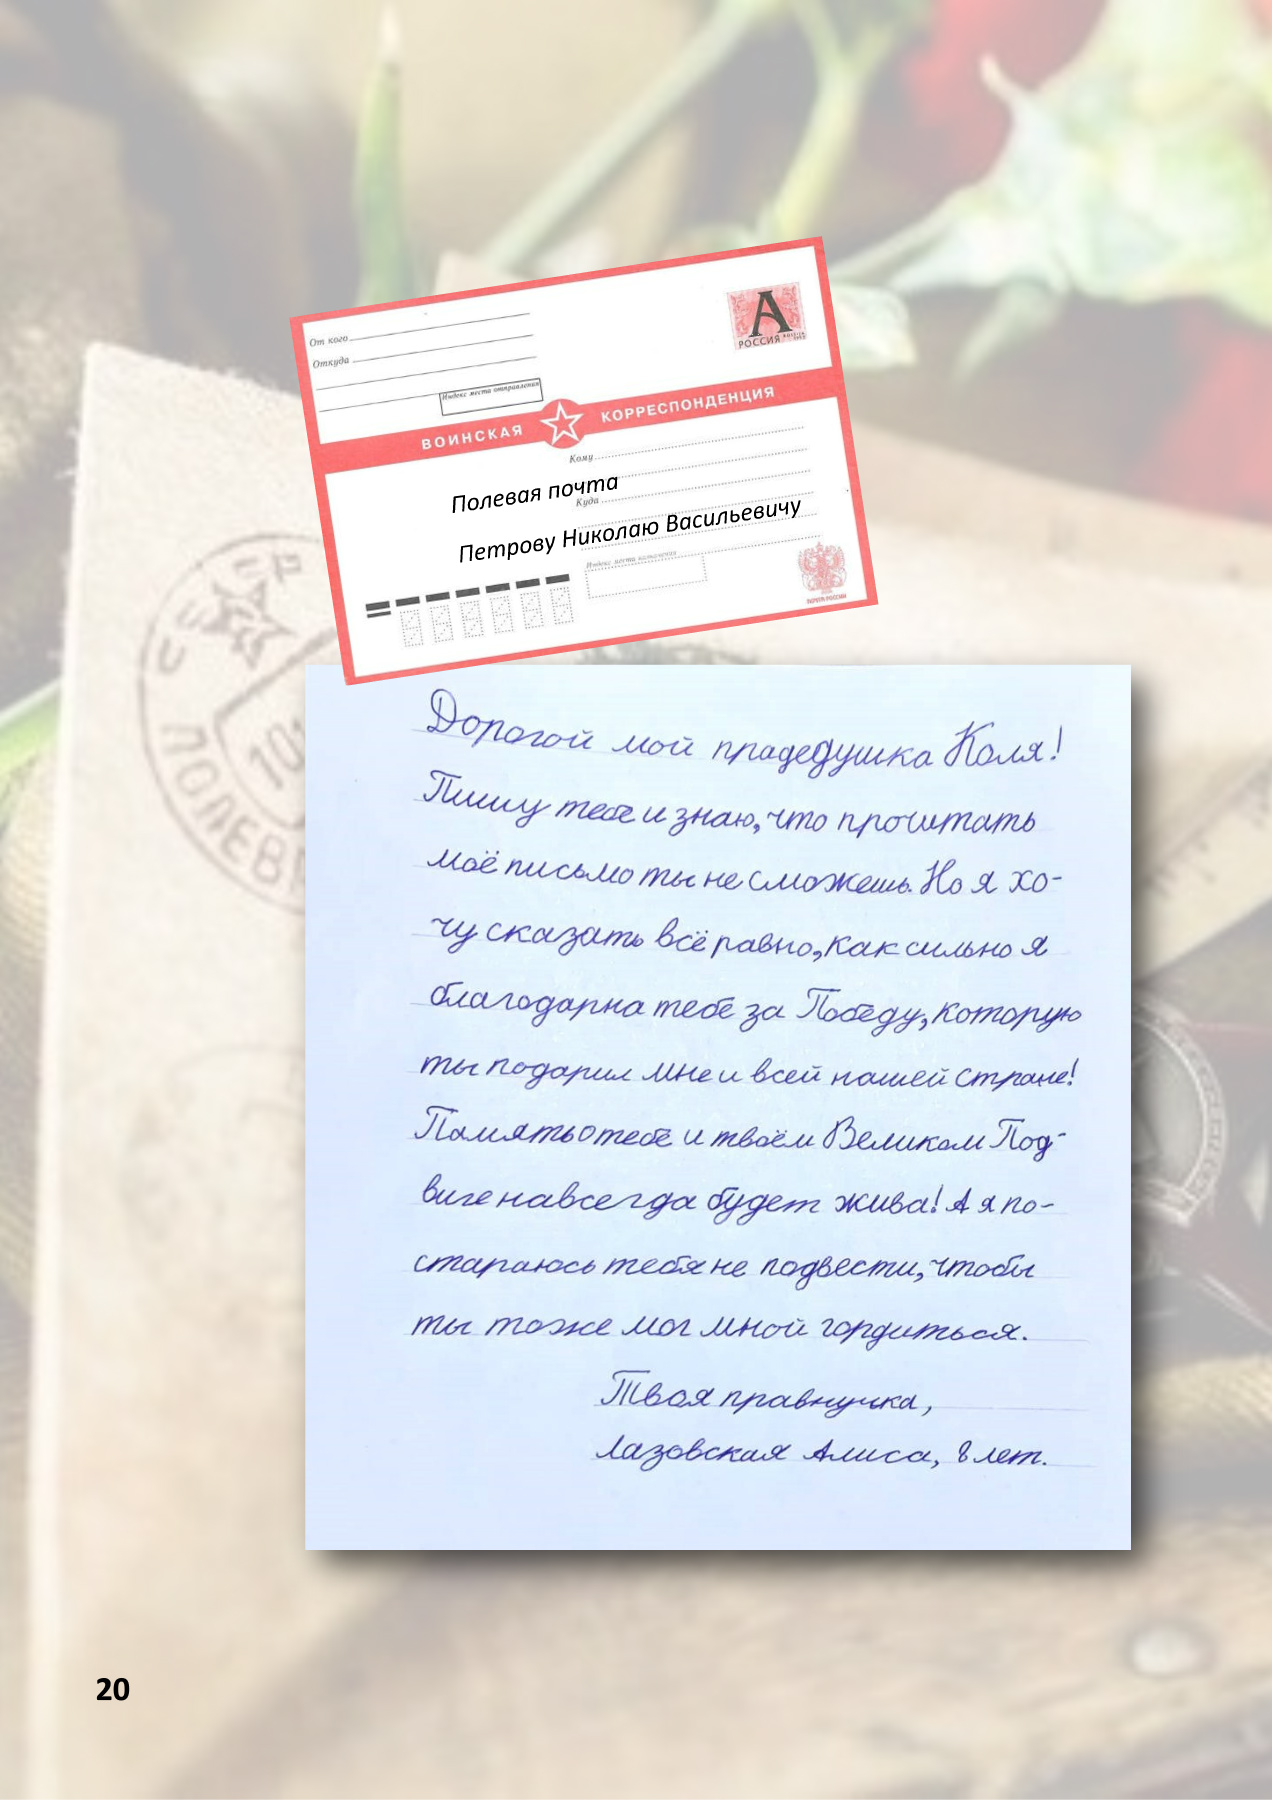 От кого
Откуда
Индекс места отправления
А
РОССИЯ
ВОИНСКАЯ КОРРЕСПОНДЕНЦИЯ
Кому
Полевая почта
Куда
Петрову Николаю Васильевичу
Индекс места назначения
ПОЧТА РОССИИ
СССР
ПОЛЕВ
Дорогой мой прадедушка Коля!
Пишу тебе и знаю, что прочитать
моё письмо ты не сможешь. Но я хо-
чу сказать всё равно, как сильно я
благодарна тебе за Победу, которую
ты подарил мне и всей нашей стране!
Память о тебе и твоём Великом Под-
виге навсегда будет жива! А я по-
стараюсь тебя не подвести, чтобы
ты тоже мог мной гордиться.
Твоя правнучка,
Лазовская Алиса, 8 лет.
20